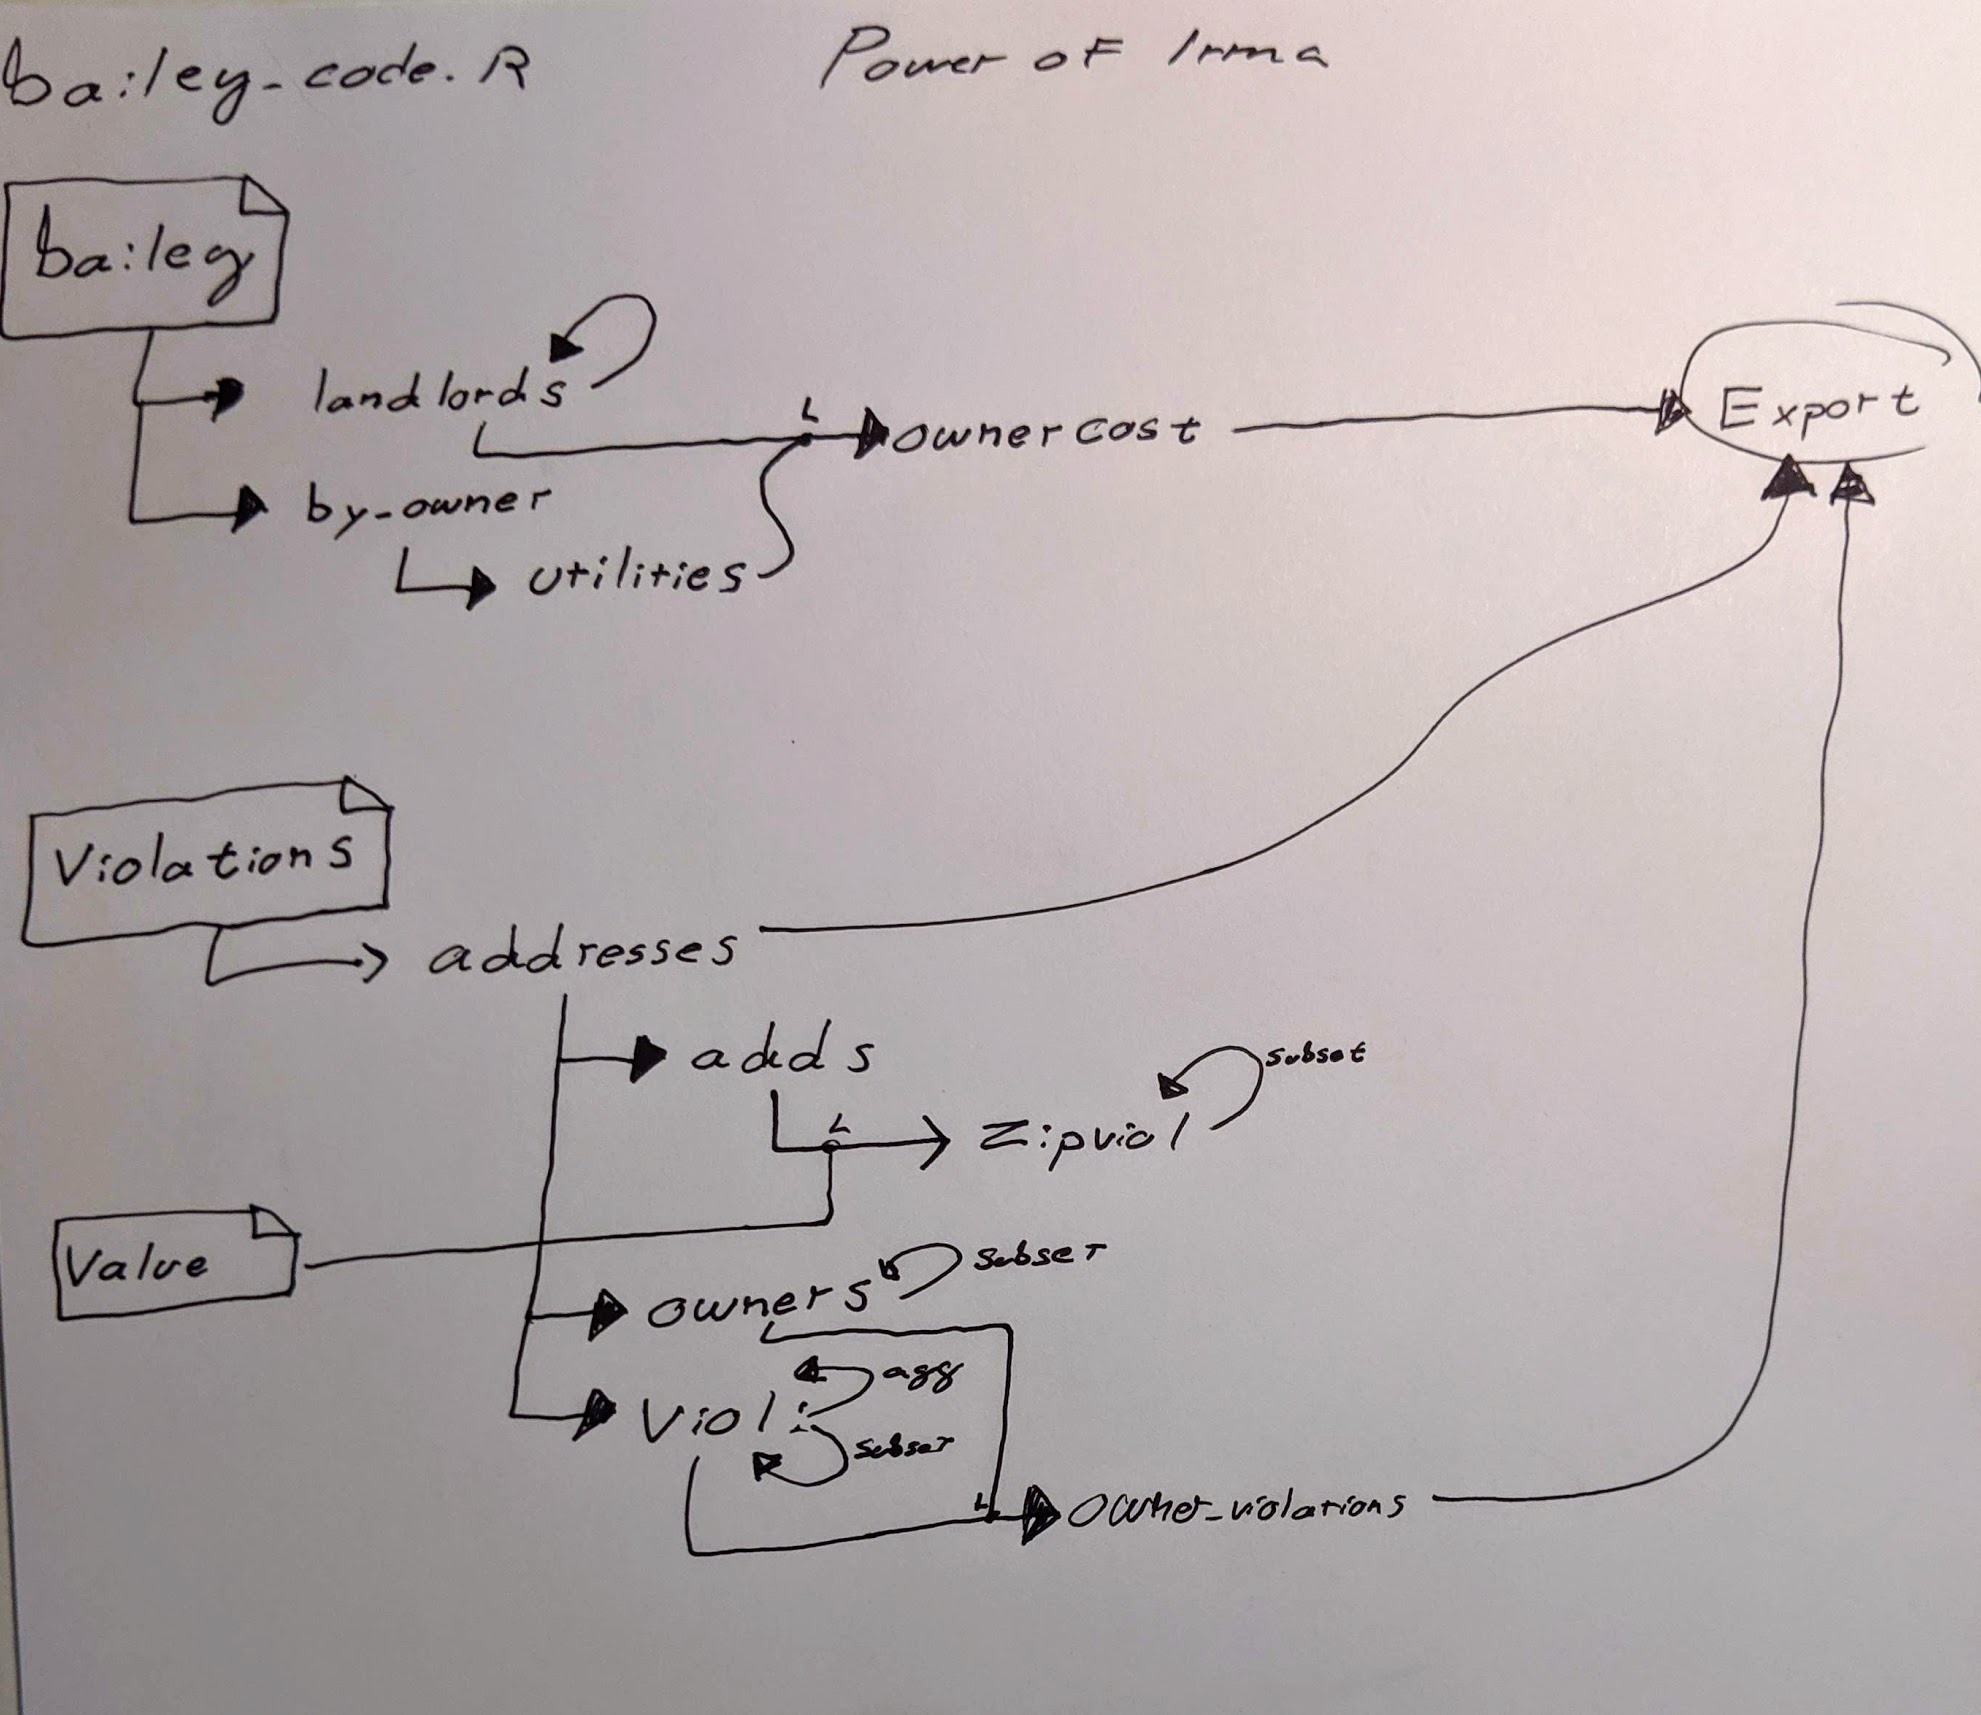 bailey_code.R
Power of Irma
bailey
landlords
L
ownercost
Export
by_owner
utilities
Violations
addresses
adds
subset
L
Zipviol
Value
owners
subset
agg
Viol
subset
L
owner_violations